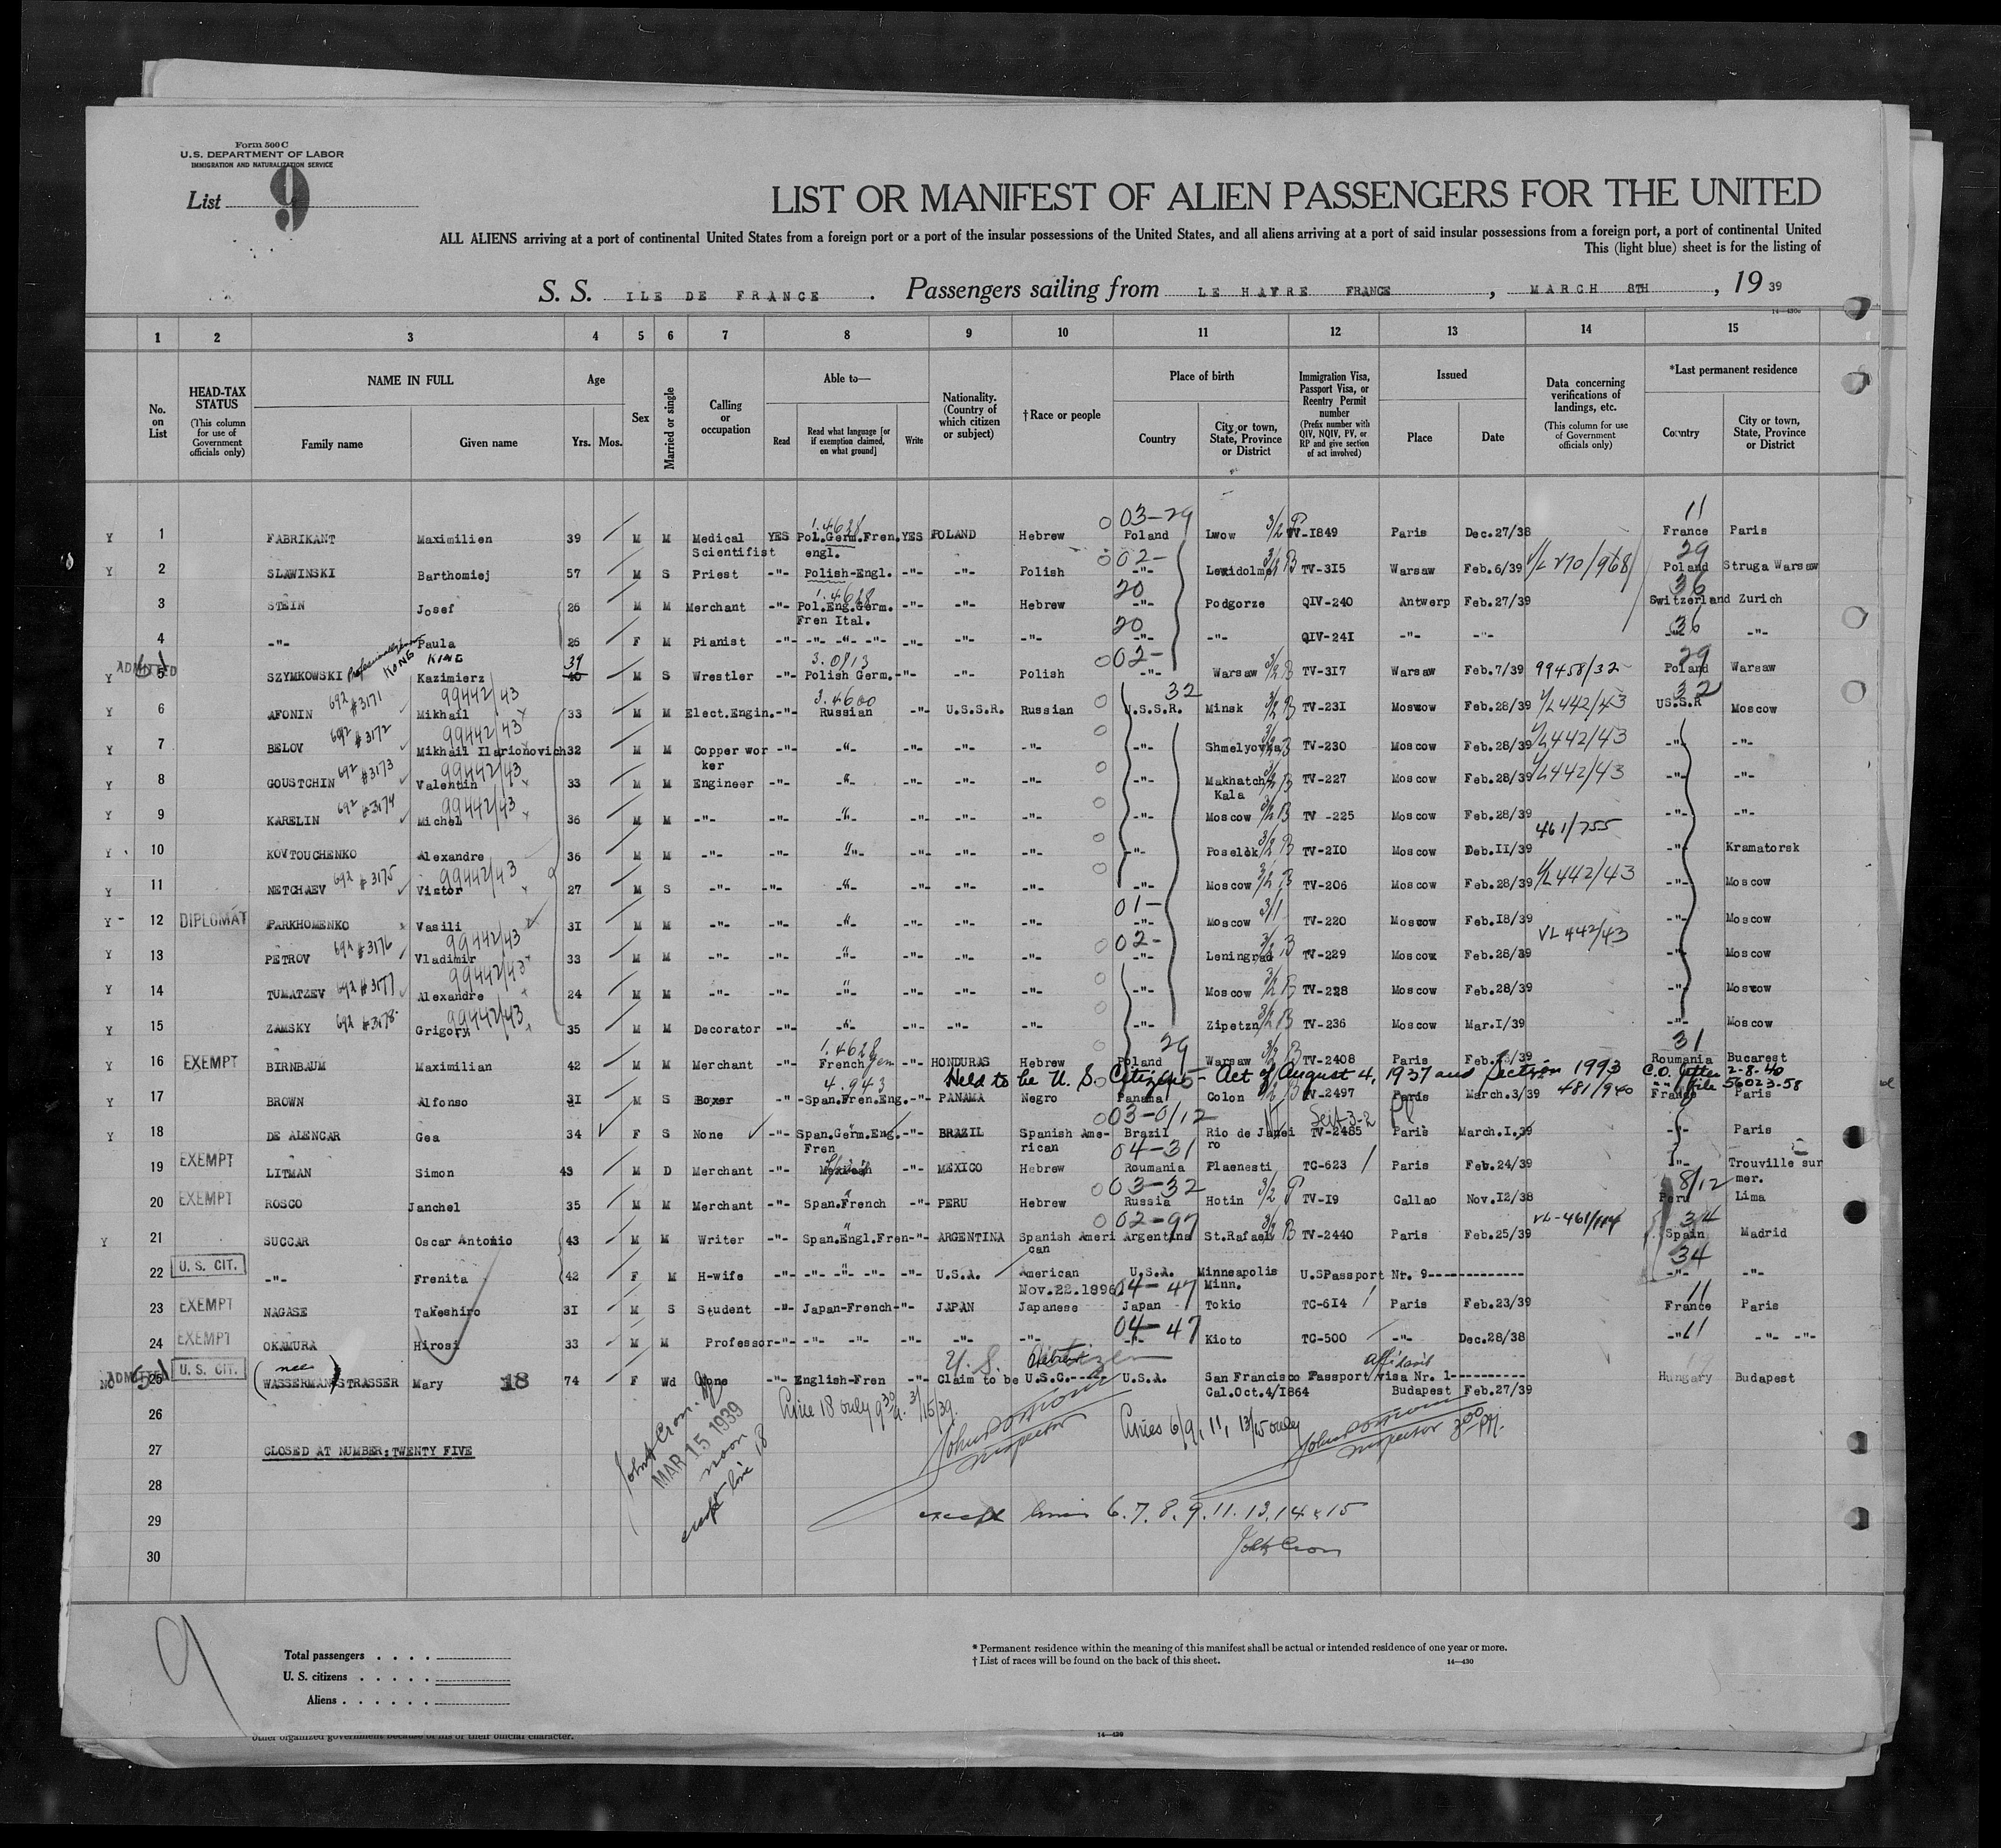 Form 500 C
U.S. DEPARTMENT OF LABOR
IMMIGRATION AND NATURALIZATION SERVICE
List 9
LIST OR MANIFEST OF ALIEN PASSENGERS FOR THE UNITED
ALL ALIENS arriving at a port of continental United States from a foreign port or a port of the insular possessions of the United States, and all aliens arriving at a port of said insular possessions from a foreign port, a port of continental United
This (light blue) sheet is for the listing of
S. S. ILE DE FRANCE . Passengers sailing from LE HAVRE FRANCE , MARCH 8TH , 19 39
14—430c
1 2 3 4 5 6 7 8 9 10 11 12 13 14 15
No. on List
HEAD-TAX STATUS
(This column for use of Government officials only)
NAME IN FULL
Family name
Given name
Age
Yrs. Mos.
Sex
Married or single
Calling or occupation
Able to—
Read
Read what language [or if exemption claimed, on what ground]
Write
Nationality. (Country of which citizen or subject)
†Race or people
Place of birth
Country
City or town, State, Province or District
Immigration Visa, Passport Visa, or Reentry Permit number
(Prefix number with QIV, NQIV, PV, or RP and give section of act involved)
Issued
Place
Date
Data concerning verifications of landings, etc.
(This column for use of Government officials only)
*Last permanent residence
Country
City or town, State, Province or District
1.4628 03-29 3/2 11
Y 1 FABRIKANT Maximilien 39 M M Medical Scientifist YES Pol.Germ.Fren. engl. YES POLAND Hebrew Poland Lwow TV-1849 Paris Dec.27/38 France Paris
02- 29
Y 2 SLAWINSKI Barthomiej 57 M S Priest -"- Polish-Engl. -"- -"- Polish -"- TV-315 Warsaw Feb.6/39 Poland Struga Warsaw
1.4628 20 36
3 STEIN Josef 26 M M Merchant -"- Pol.Eng.Germ. Fren Ital. -"- -"- Hebrew -"- Podgorze QIV-240 Antwerp Feb.27/39 Switzerland Zurich
20 36
4 -"- Paula 26 F M Pianist -"- -"- -"- -"- -"- -"- -"- -"- -"- QIV-241 -"- -"- -"-
ADMITTED KONG KING 39 3.0813 02- 29
Y 5 SZYMKOWSKI Kazimierz 40 M S Wrestler -"- Polish Germ. -"- -"- Polish -"- Warsaw 3/2 B TV-317 Warsaw Feb.7/39 99458/32 Poland Warsaw
692 #3171 99442/43 3.4600 32 32
Y 6 AFONIN Mikhail 33 M M Elect.Engin. -"- Russian -"- U.S.S.R. Russian U.S.S.R. Minsk 3/2 B TV-231 Moscow Feb.28/39 442/43 US.S.R Moscow
692 #3172 99442/43
Y 7 BELOV Mikhail Ilarionovich 32 M M Copper worker -"- -"- -"- -"- -"- -"- Shmelyovka TV-230 Moscow Feb.28/39 442/43 -"- -"-
692 #3173 99442/43
Y 8 GOUSTCHIN Valentin 33 M M Engineer -"- -"- -"- -"- -"- -"- Makhatch Kala TV-227 Moscow Feb.28/39 442/43 -"- -"-
692 #3174 99442/43
Y 9 KARELIN Michel 36 M M -"- -"- -"- -"- -"- -"- -"- Moscow 3/2 B TV -225 Moscow Feb.28/39 -"- -"-
461/755
Y 10 KOVTOUCHENKO Alexandre 36 M M -"- -"- -"- -"- -"- -"- -"- Poselok 3/2 B TV-210 Moscow Deb.II/39 -"- Kramatorsk
692 #3175 99442/43
Y 11 NETCHAEV Victor 27 M S -"- -"- -"- -"- -"- -"- -"- Moscow 3/2 B TV-206 Moscow Feb.28/39 442/43 -"- Moscow
01- 3/1
Y - 12 DIPLOMAT PARKHOMENKO Vasili 31 M M -"- -"- -"- -"- -"- -"- -"- Moscow TV-220 Moscow Feb.18/39 -"- Moscow
692 #3176 99442/43 02- VL 442/43
Y 13 PETROV Vladimir 33 M M -"- -"- -"- -"- -"- -"- -"- Leningrad 3/2 B TV-229 Moscow Feb.28/39 -"- Moscow
692 #3177 99442/43
Y 14 TUMATZEV Alexandre 24 M M -"- -"- -"- -"- -"- -"- -"- Moscow 3/2 B TV-228 Moscow Feb.28/39 -"- Moscow
692 #3178 99442/43
Y 15 ZAMSKY Grigory 35 M M Decorator -"- -"- -"- -"- -"- -"- Zipetzn 3/2 B TV-236 Moscow Mar.I/39 -"- Moscow
1.4628 29 31
Y 16 EXEMPT BIRNBAUM Maximilian 42 M M Merchant -"- French Gem -"- HONDURAS Hebrew Poland Warsaw 3/2 B TV-2408 Paris Roumania Bucarest
4.943 Held to be U. S. Citizen - Act of August 4, 1937 and Section 1993 C.O. letter 2-8-40 file 56023-58
Y 17 BROWN Alfonso 31 M S Boxer -"- Span.Fren.Eng. -"- PANAMA Negro Panama Colon TV-2497 Paris March.3/39 481/940 France Paris
03-0/12
Y 18 DE ALENCAR Gea 34 F S None -"- Span.Germ.Eng. Fren -"- BRAZIL Spanish American Brazil Rio de Janeiro TV-2485 Paris March.I.39 Paris
04-31
19 EXEMPT LITMAN Simon 43 M D Merchant -"- -"- MEXICO Hebrew Roumania Plaenesti TC-623 Paris Feb.24/39 -"- Trouville sur mer.
03-32 8/12
20 EXEMPT ROSCO Janchel 35 M M Merchant -"- Span.French -"- PERU Hebrew Russia Hotin 3/2 TV-19 Callao Nov.12/38 Peru Lima
02-97 VL-461/114 34
Y 21 SUCCAR Oscar Antonio 43 M M Writer -"- Span.Engl.Fren -"- ARGENTINA Spanish American Argentina St.Rafael 3/2 B TV-2440 Paris Feb.25/39 Spain Madrid
34
22 U. S. CIT. -"- Frenita 42 F M H-wife -"- -"- -"- -"- -"- U.S.A. American Nov.22.1896 U.S.A. Minneapolis Minn. U.SPassport Nr. 9------------ -"- -"-
04-47 11
23 EXEMPT NAGASE Takeshiro 31 M S Student -"- Japan-French -"- JAPAN Japanese Japan Tokio TC-614 Paris Feb.23/39 France Paris
04-47
24 EXEMPT OKAMURA Hirosi 33 M M Professor -"- -"- -"- -"- -"- -"- -"- Kioto TC-500 -"- Dec.28/38 -"- 11 -"- -"-
ADMITTED nee U. S. Citizen affidavit
NO 25 U. S. CIT. (WASSERMAN) STRASSER Mary 18 74 F Wd None -"- English-Fren -"- Claim to be U.S.C.---- U.S.A. San Francisco Cal.Oct.4/1864 Passport visa Nr. 1---------- Budapest Feb.27/39 Hungary Budapest
26
Line 18 only 9 30 a. 3/15/39.
Lines 6/9, 11, 13/15 only
Inspector
Inspector 3 00 PM.
27 CLOSED AT NUMBER:TWENTY FIVE
John Cron
MAR 15 1939
noon
except line 18
28
29
except lines 6.7.8.9.11.13.14 & 15
John Cron
30
9
Total passengers . . . .
U. S. citizens . . . . .
Aliens . . . . . .
* Permanent residence within the meaning of this manifest shall be actual or intended residence of one year or more.
† List of races will be found on the back of this sheet.
14—430
other organized government because of his or their official character.
14—430